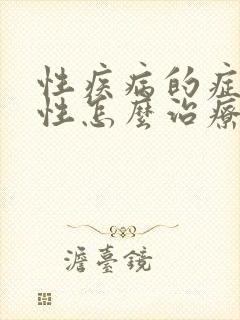 性疾病的症
性怎麼治療
澹臺鏡